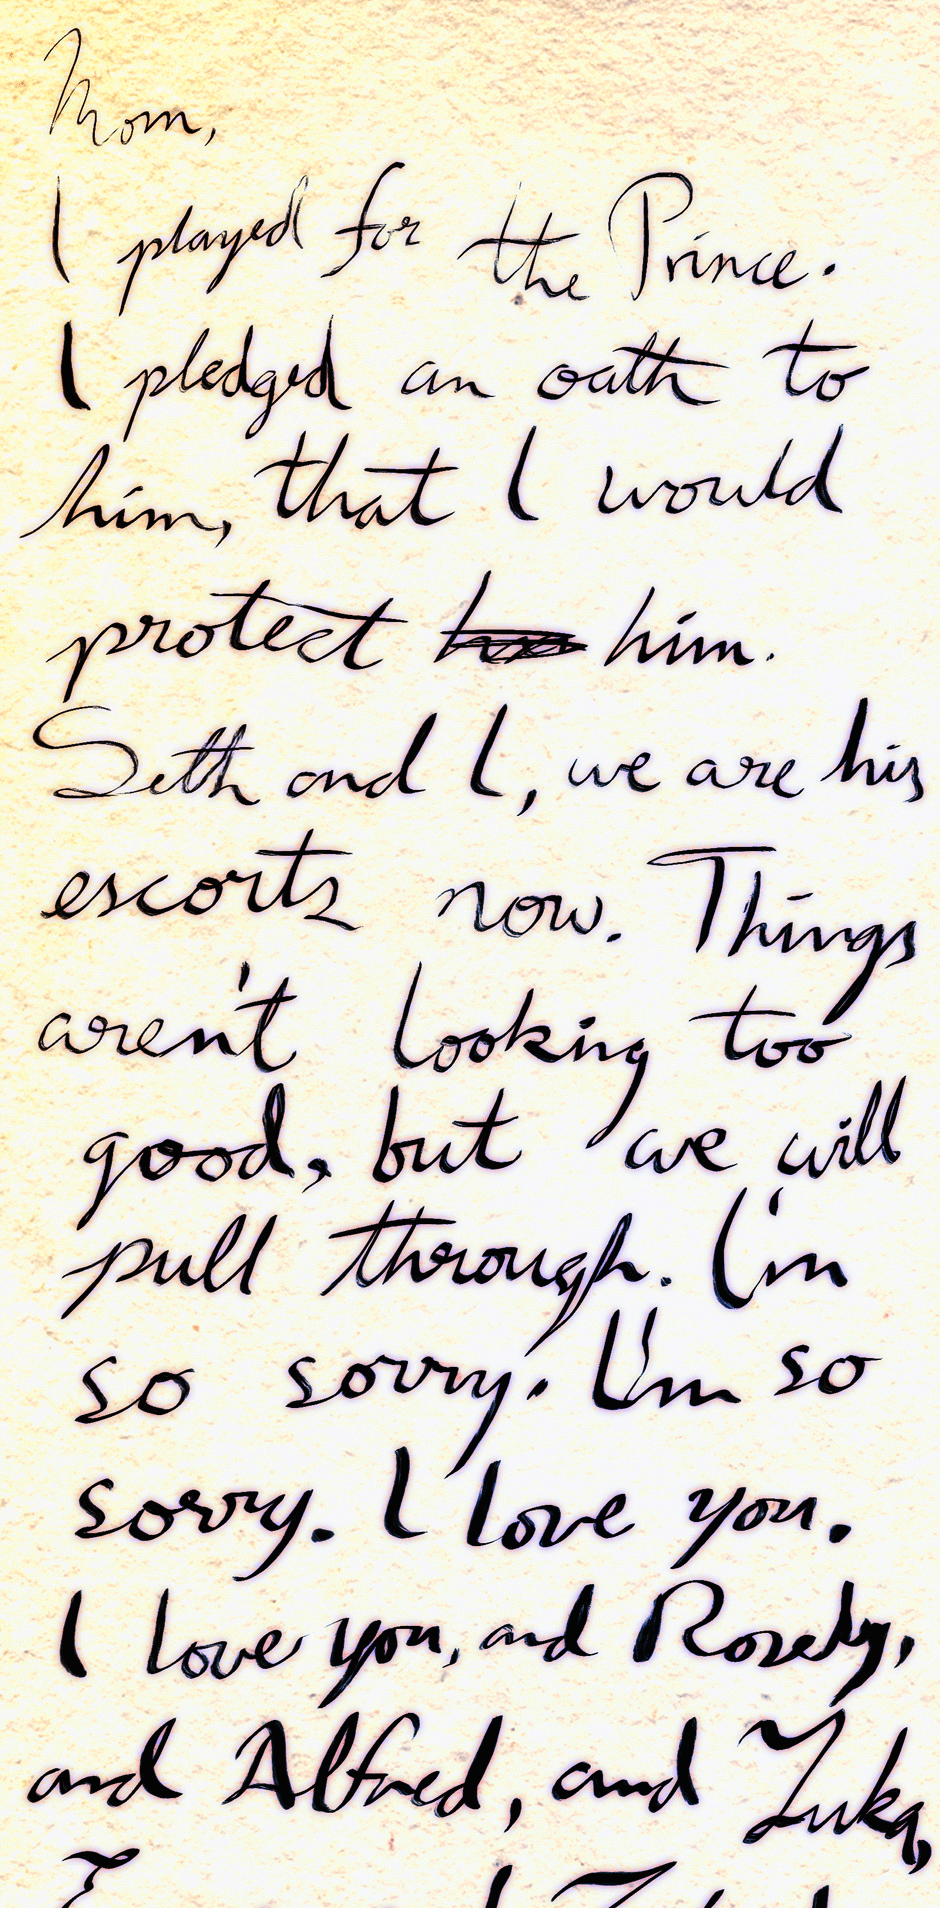 Mom,
I played for the Prince.
I pledged an oath to
him, that I would
protect him.
Seth and I, we are his
escorts now. Things
aren't looking too
good, but we will
pull through. I'm
so sorry. I'm so
sorry. I love you.
I love you, and Rosely,
and Alfred, and